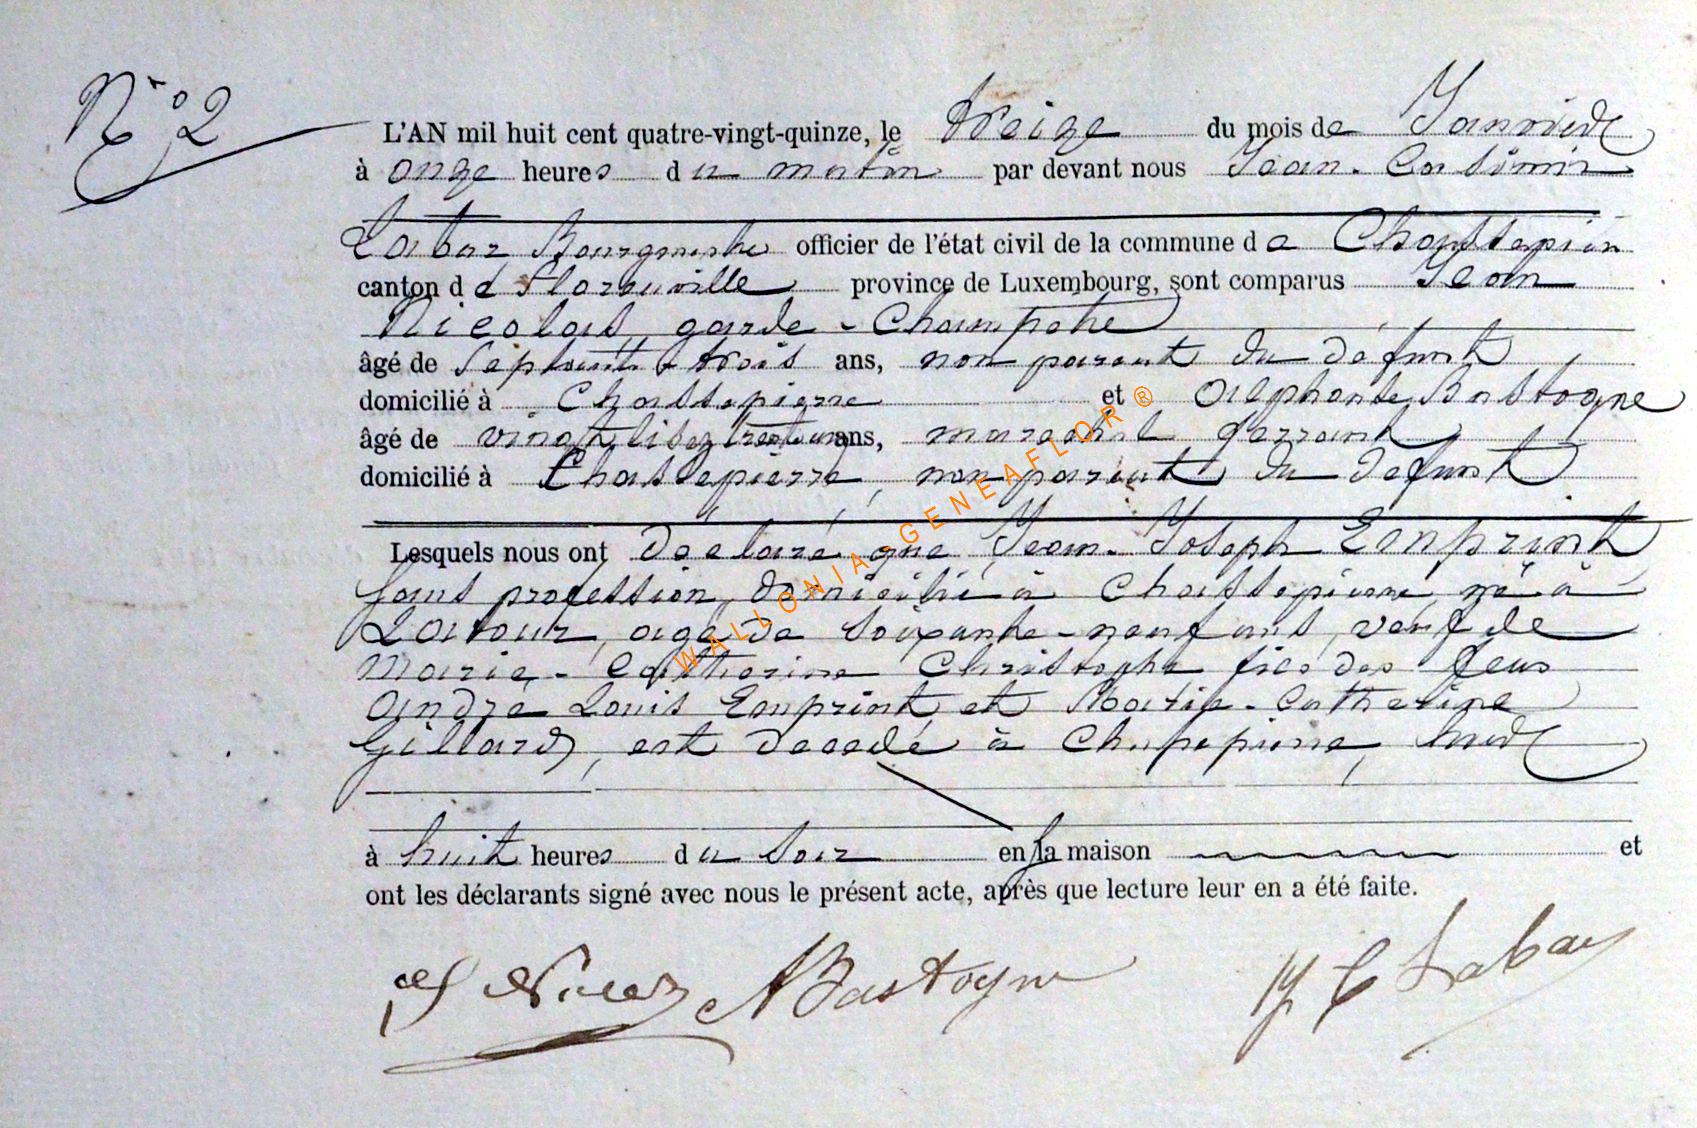 N° 2
L'AN mil huit cent quatre-vingt-quinze, le treize du mois de Janvier
à onze heures du matin par devant nous Jean-Casimir
Labar Bourgmestre officier de l'état civil de la commune de Chassepierre
canton de Florenville province de Luxembourg, sont comparus Jean
Nicolas, garde-Champêtre
âgé de septante trois ans, non parent du défunt
domicilié à Chassepierre et Alphonse Bastogne
âgé de vingt lisez trente un ans, maréchal ferrant
domicilié à Chassepierre, non parent du défunt
Lesquels nous ont déclaré que Jean-Joseph Emprint
sans profession, domicilié à Chassepierre, né à
Latour, agé de soixante-neuf ans, veuf de
Marie-Catherine Christophe fils des feus
André Louis Emprint et Marie-Catherine
Gillard, est décedé à Chassepierre, hier
à huit heures du soir en la maison et
ont les déclarants signé avec nous le présent acte, après que lecture leur en a été faite.
ABastogne J C Labar
WALLONIA-GENEAFLOR ®